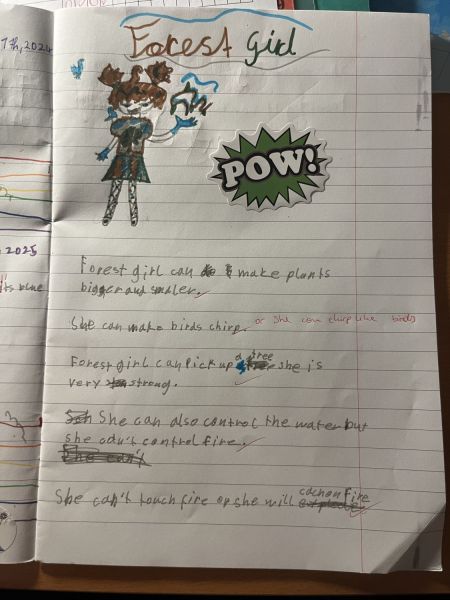 7th, 2024
2025
its blue
Forest girl
POW!
Forest girl can make plants
bigger and smaler.
She can make birds chirp. or she can chirp like birds
Forest girl can pick up a tree she is
very strong.
She can also control the water but
she cdn't control fire.
She can't
She can't touch fire or she will cdchan fire